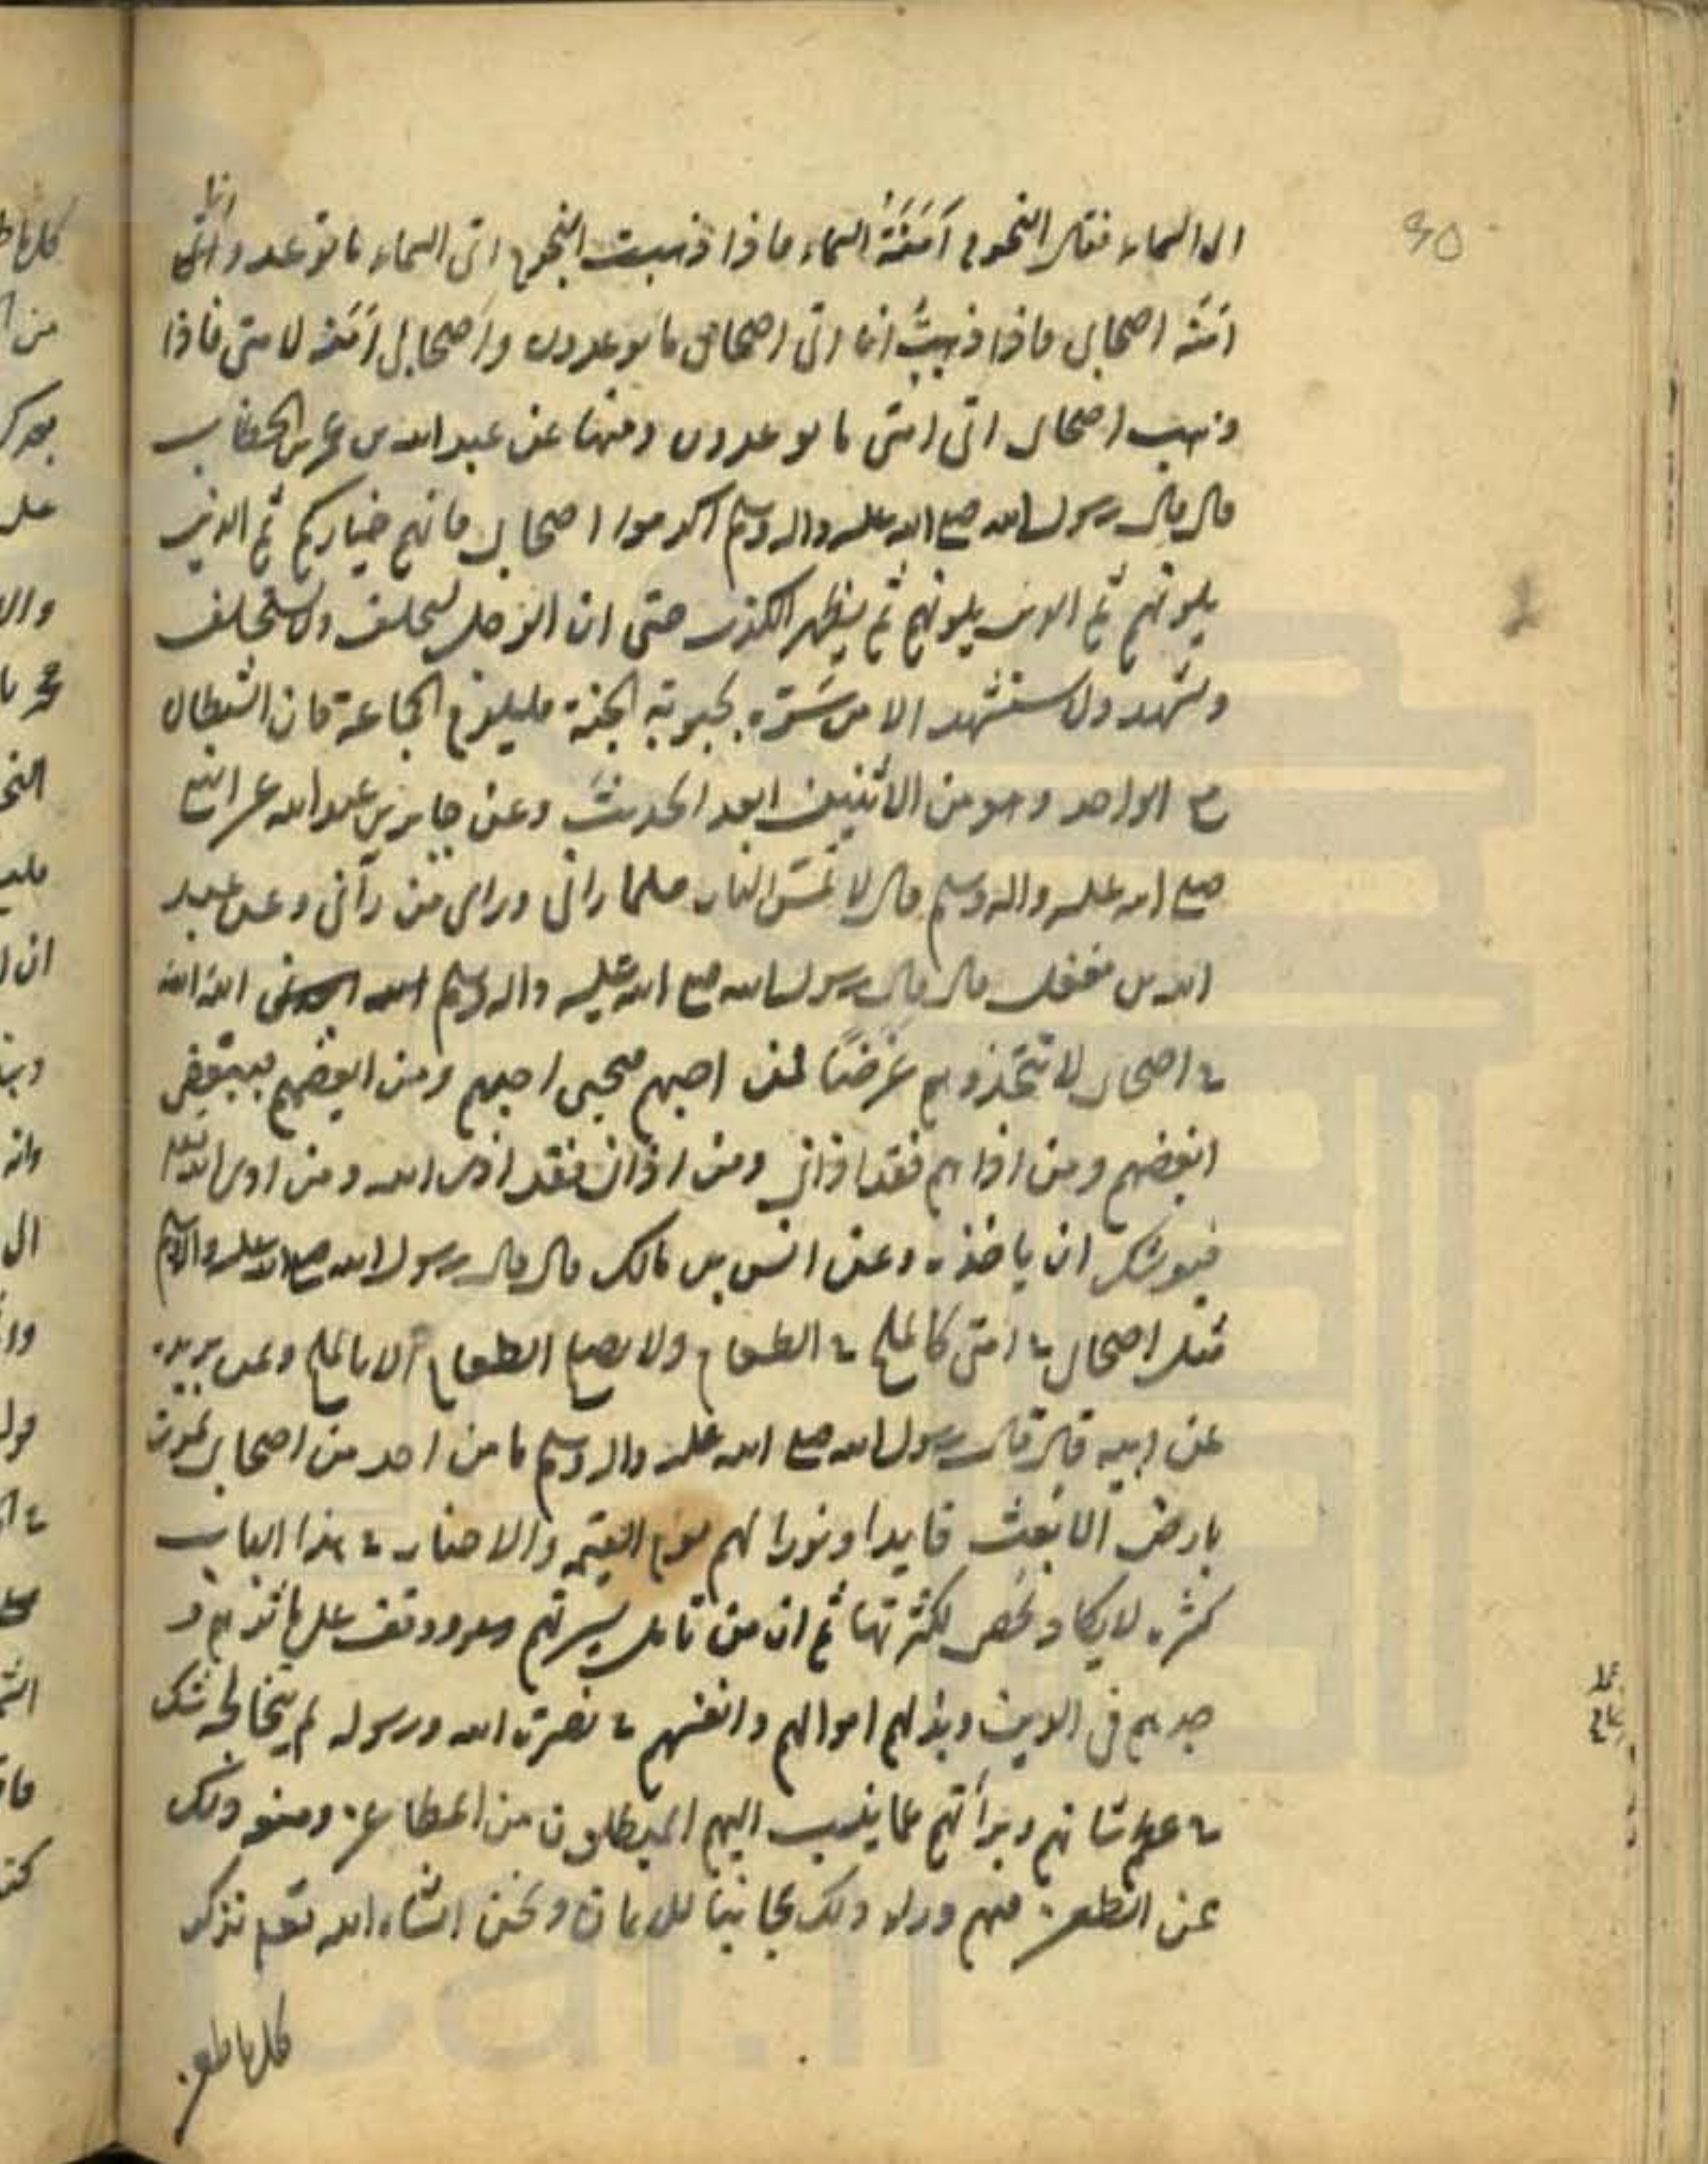 ٤٥
الى السماء فقال النجوم اَمَنَةُ السماء فاذا ذهبت النجوم اتى السماء ما توعد وانا
امنة اصحابى فاذا ذهبتُ انا اتى اصحابى ما يوعدون واصحابى اَمَنة لامتى فاذا
ذهب اصحابى اتى امتى ما يوعدون ومنها عن عبد الله بن عمر بن الخطاب
قال قال رسول الله صلى الله عليه واله وسلم اكرموا اصحابى فانهم خياركم ثم الذين
يلونهم ثم الذين يلونهم ثم يظهر الكذب حتى ان الرجل ليحلف ولا يستحلف
ويشهد ولا يستشهد الا من سَرّه بحبوبة الجنة فليلزم الجماعة فان الشيطان
مع الواحد وهو من الاثنين ابعد الحديث وعن جابر بن عبد الله عن النبى
صلى الله عليه واله وسلم قال لا تمسّ النار مسلما رانى وراى من رآنى وعن عبد
الله بن مغفل قال قال رسول الله صلى الله عليه واله وسلم الله الله
فى اصحابى لا تتخذوهم غرضًا فمن احبهم فبحبى احبهم ومن ابغضهم فببغضى
ابغضهم ومن اذاهم فقد اذانى ومن اذانى فقد اذى الله ومن اذى الله
فيوشك ان ياخذه وعن انس بن مالك قال قال رسول الله صلى الله عليه واله وسلم
مثل اصحابى فى امتى كالملح فى الطعام ولا يصلح الطعام الا بالملح وعن بريده
عن ابيه قال قال رسول الله صلى الله عليه واله وسلم ما من احد من اصحابى يموت
بارض الا بعث قايدا ونورا لهم يوم القيمة والاخبار فى هذا الباب
كثيره لا يكاد تحصى لكثرتها ثم ان من تامل سيرتهم ووقف على ماثرهم و
جدهم فى الدين وبذلهم اموالهم وانفسهم فى نصرة الله ورسوله لم يتخالجه شك
فى عظم شانهم وبرأتهم عما ينسب اليهم المبطلون من المطاعن ومنعه ذلك
عن الطعن فيهم وراى ذلك مجانبا للايمان ونحن انشاء الله تعم نذكر
كل ما طعن